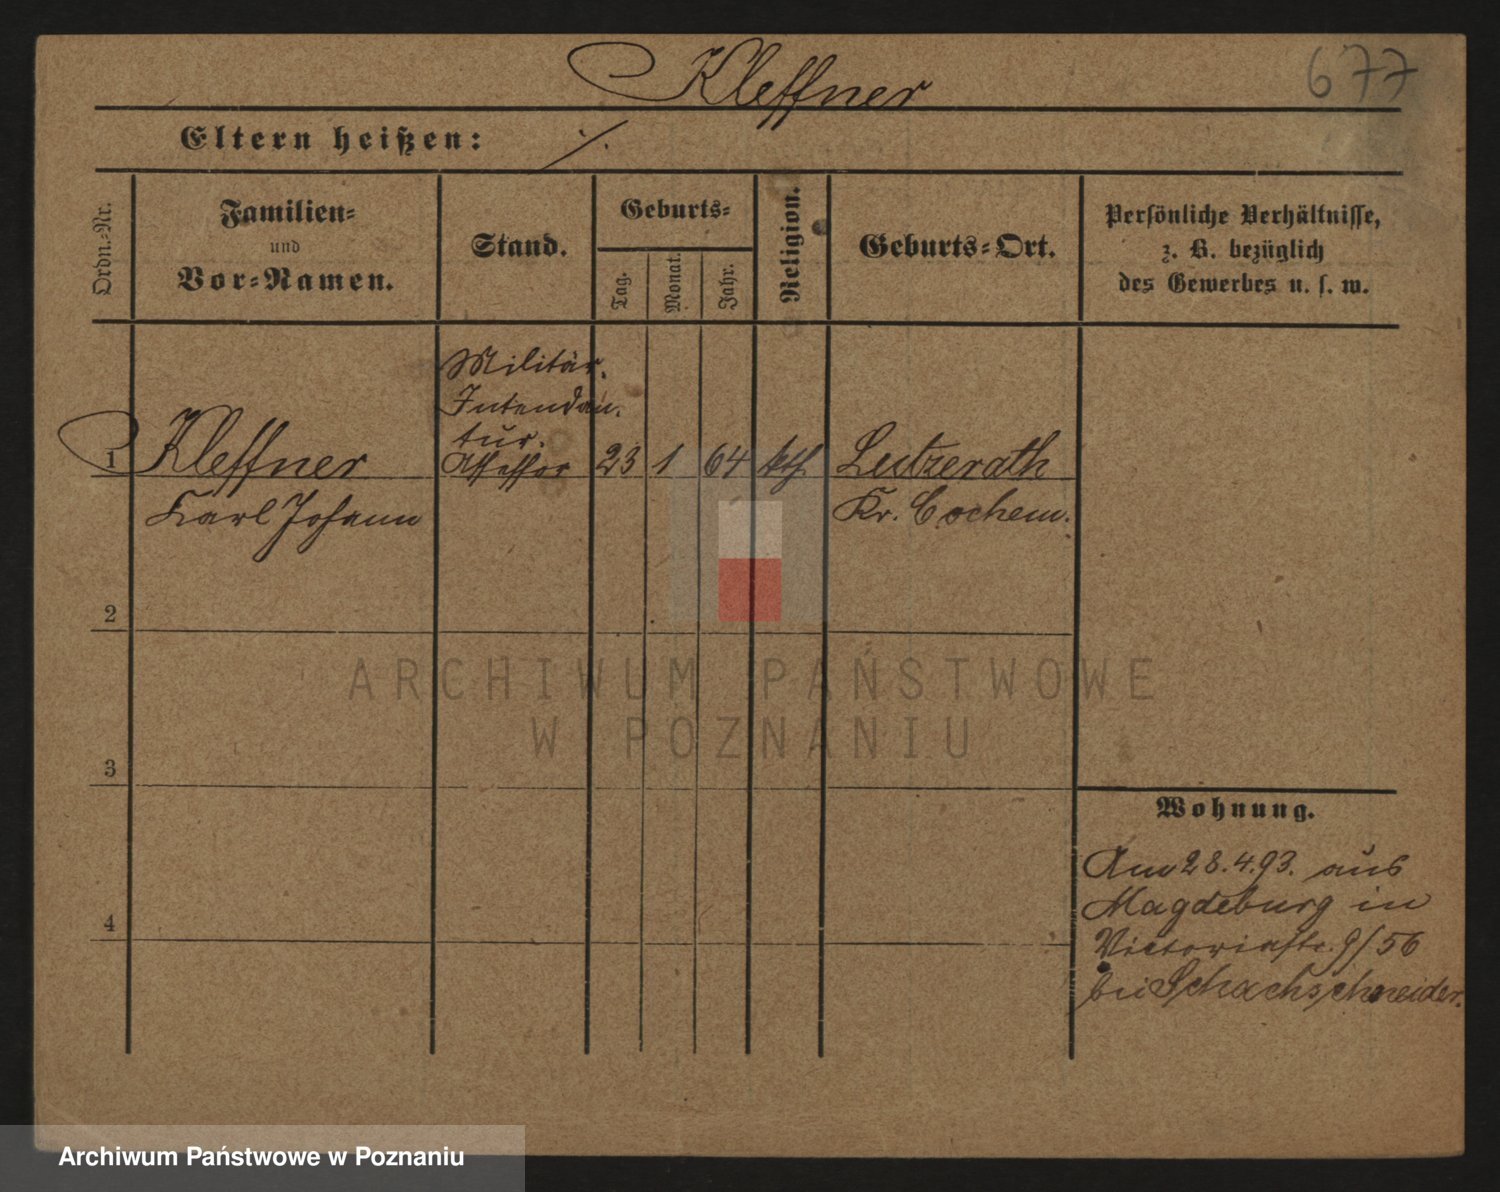 Kleffner
677
Eltern heißen: ./.
Ordn.-Nr.
Familien-
und
Vor-Namen.
Stand.
Geburts-
Tag.
Monat.
Jahr.
Religion.
Geburts-Ort.
Persönliche Verhältnisse,
z. B. bezüglich
des Gewerbes u. s. w.
Militär.
Intendan.
tur.
Assessor
1 Kleffner 23 1 64 kth Lutzerath
Karl Johann Kr. Cochem.
2
ARCHIWUM PAŃSTWOWE
W POZNANIU
3
Wohnung.
Am 28.4.93. aus
Magdeburg in
4
Victoriastr. 9/56
bei Schachschneider.
Archiwum Państwowe w Poznaniu